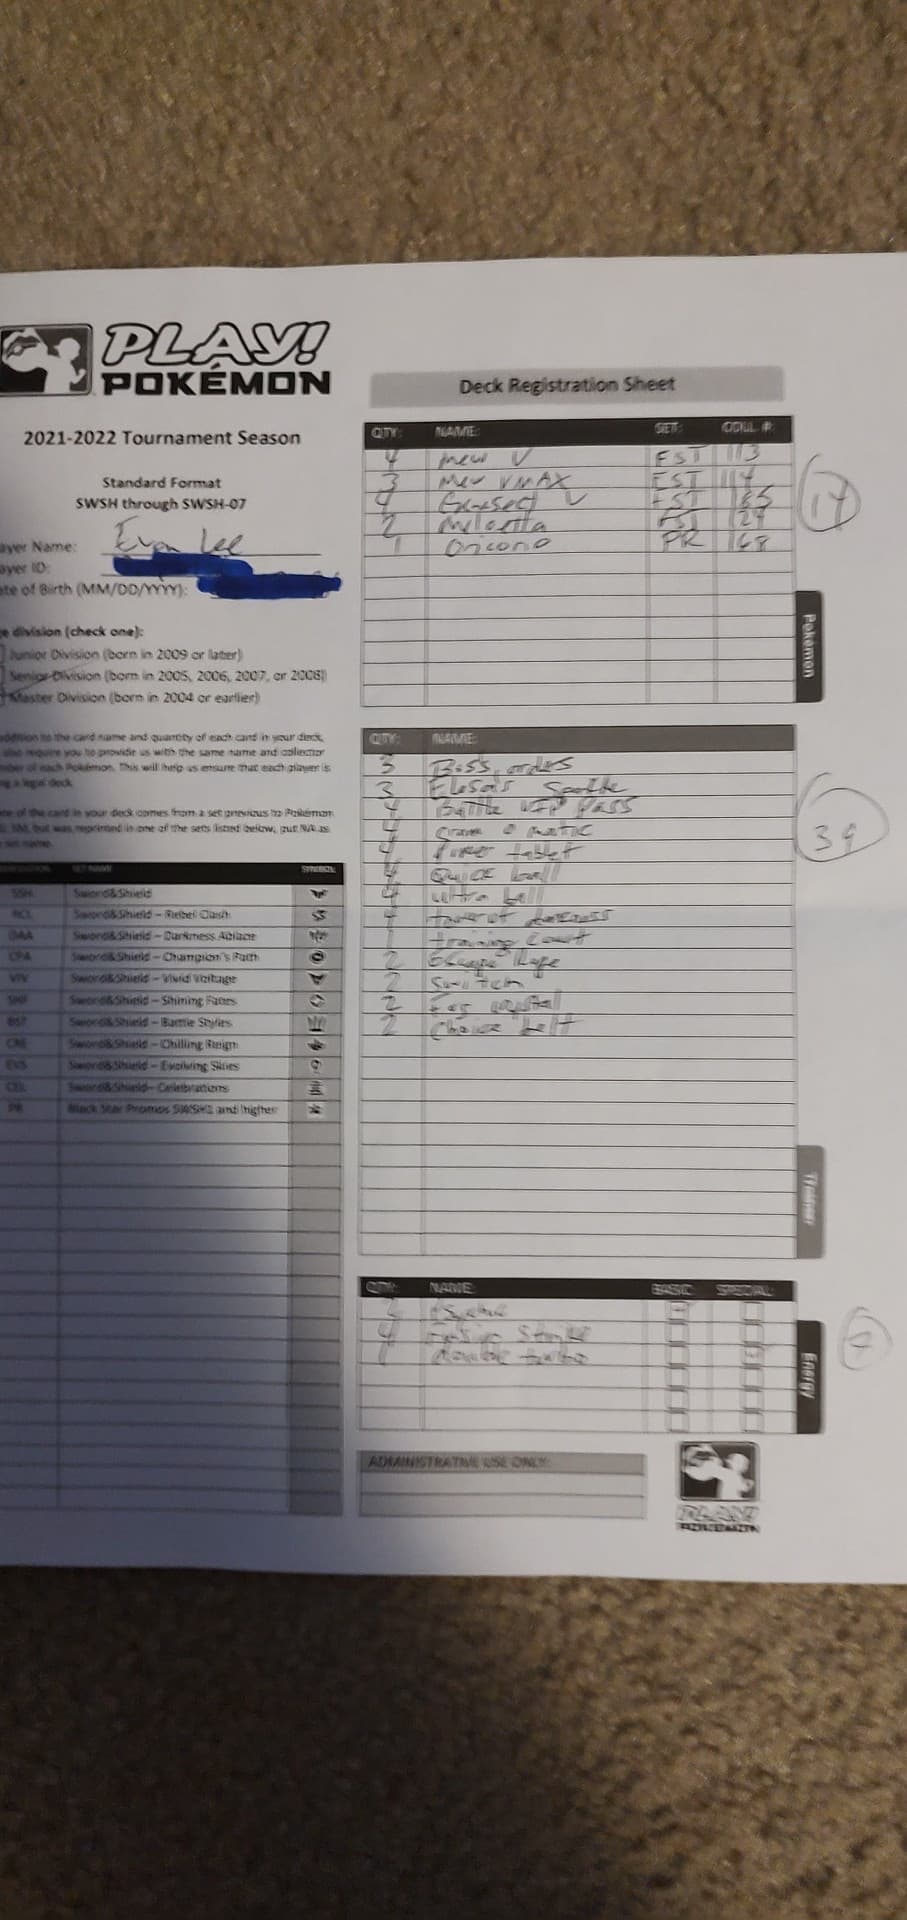 PLAY!
POKÉMON
2021-2022 Tournament Season
Standard Format
SWSH through SWSH-07
ayer Name: Evan Lee
ayer ID:
ate of Birth (MM/DD/YYYY):
e division (check one):
Junior Division (born in 2009 or later)
Senior Division (born in 2005, 2006, 2007, or 2008)
Master Division (born in 2004 or earlier)
addition to the card name and quantity of each card in your deck,
also require you to provide us with the same name and collector
mber of each Pokémon. This will help us ensure that each player is
ng a legal deck.
one of the card in your deck comes from a set previous to Pokémon
but was reprinted in one of the sets listed below, put N/A as
set name.
SET NAME SYMBOL
SSH Sword&Shield
RCL Sword&Shield – Rebel Clash
DAA Sword&Shield – Darkness Ablaze
CPA Sword&Shield – Champion's Path
VIV Sword&Shield – Vivid Voltage
SHF Sword&Shield – Shining Fates
BST Sword&Shield – Battle Styles
CRE Sword&Shield – Chilling Reign
EVS Sword&Shield – Evolving Skies
CEL Sword&Shield– Celebrations
PR Black Star Promos SWSH1 and higher
Deck Registration Sheet
QTY: NAME: SET: COLL #:
4 mew V FST 113
3 Mew VMAX FST 114
4 Genesect V FST 185
2 Meloetta FST 124
1 Oricorio PR 168
Pokémon
QTY: NAME:
3 Boss, orders
3 Elesa's Sparkle
4 Battle VIP Pass
4 Cram o matic
4 Power tablet
4 Quick ball
4 ultra ball
4 tower of darkness
1 training court
2 Escape Rope
2 Switch
2 Fog crystal
2 Choice belt
39
Trainer
QTY: NAME: BASIC SPECIAL
4 Fusion Strike
double turbo
7
Energy
ADMINISTRATIVE USE ONLY:
PLAY!
POKÉMON